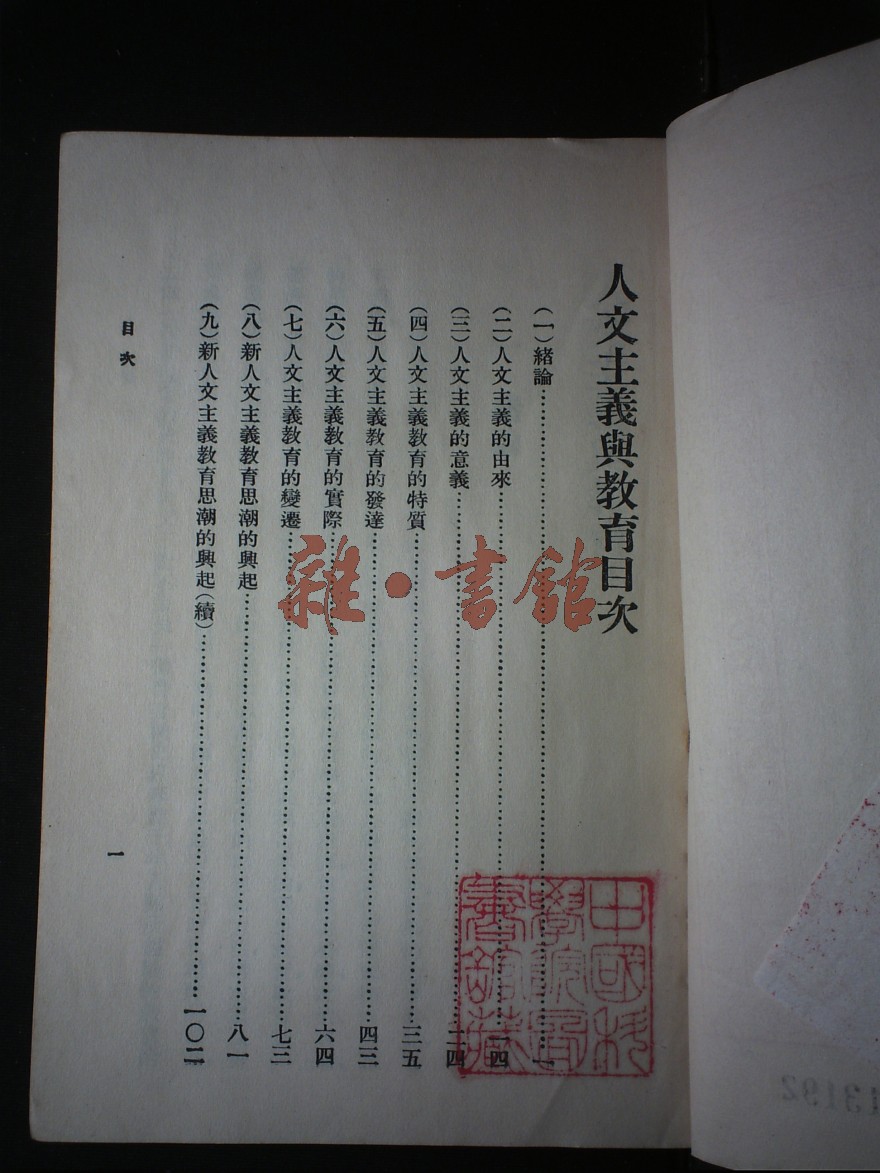 人文主義與教育目次
(一)緒論……一
(二)人文主義的由來……一四
(三)人文主義的意義……二四
(四)人文主義教育的特質……三五
(五)人文主義教育的發達……四三
(六)人文主義教育的實際……六四
(七)人文主義教育的變遷……七三
(八)新人文主義教育思潮的興起……八一
(九)新人文主義教育思潮的興起(續)……一〇二
目次
一
雜·書館
中國科
學院圖
書館藏
13192